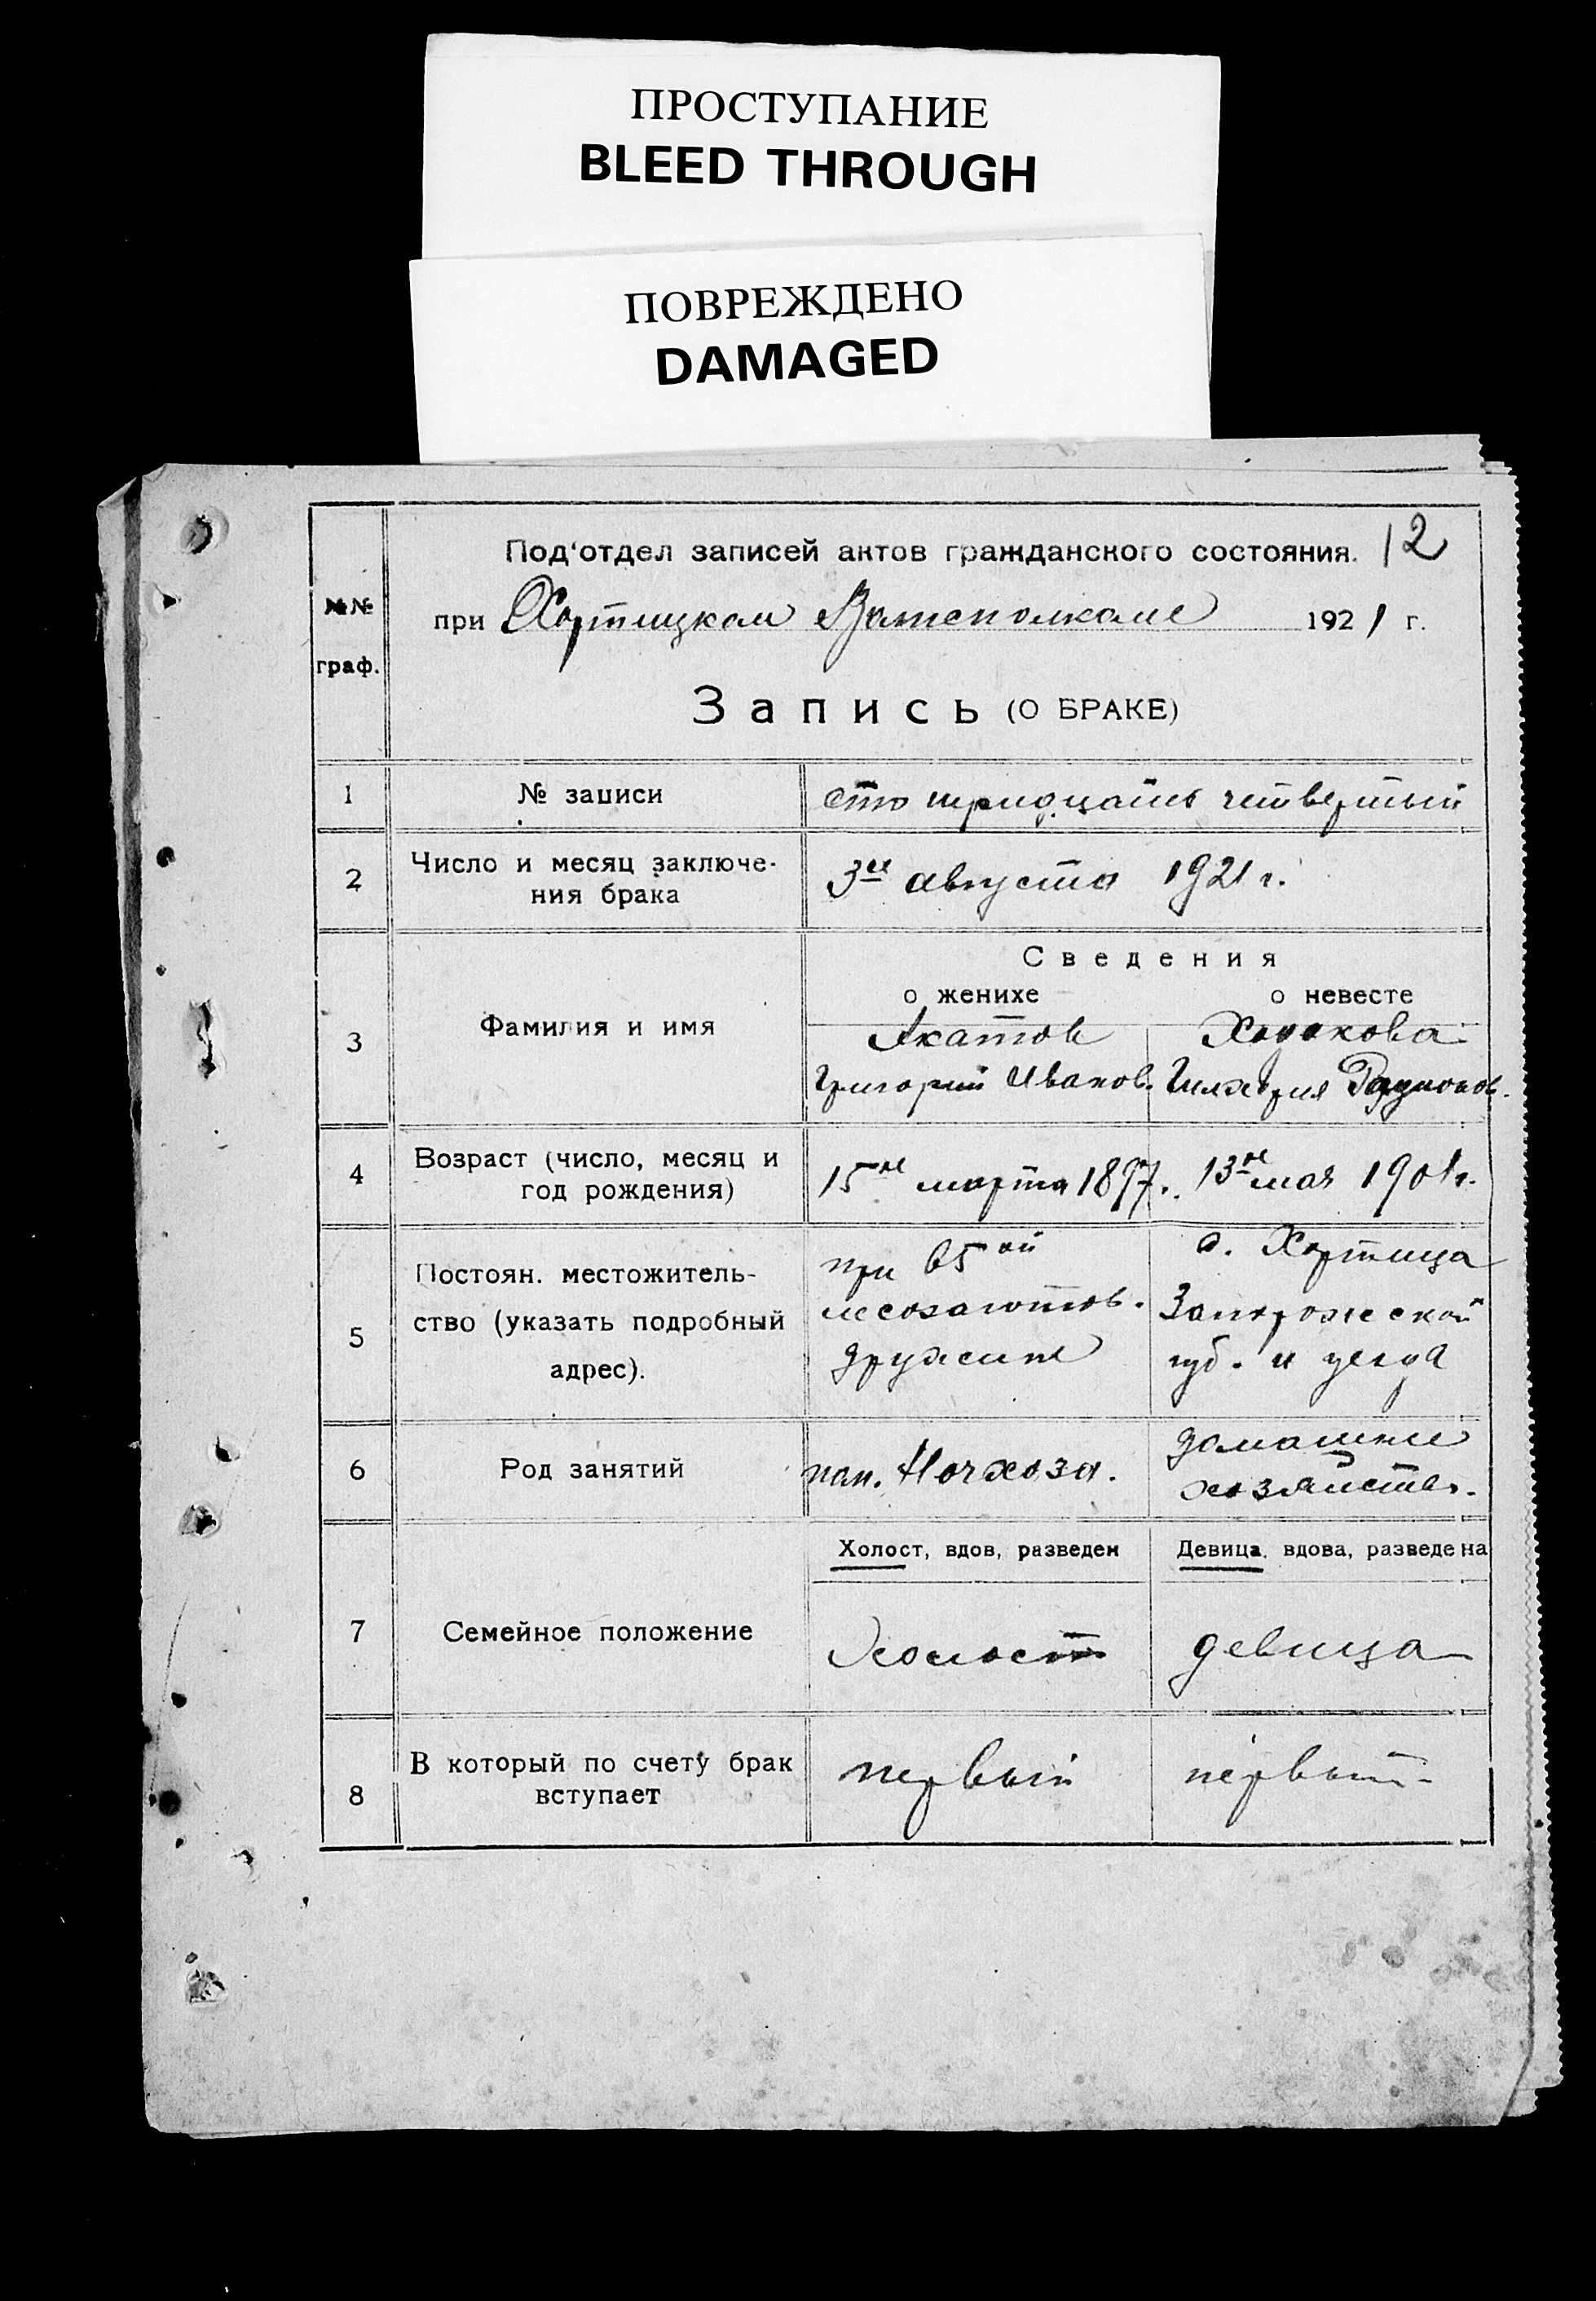 ПРОСТУПАНИЕ
BLEED THROUGH
ПОВРЕЖДЕНО
DAMAGED
№№ граф.
Под'отдел записей актов гражданского состояния. 12
при Хортицком Волисполкоме 1921 г.
Запись (О БРАКЕ)
1 № записи сто тридцать четвертый
2 Число и месяц заключе-
ния брака 3го августа 1921 г.
Сведения
о женихе о невесте
3 Фамилия и имя Акатов
Григорий Иванов.
4 Возраст (число, месяц и
год рождения) 15го марта 1897. 13го мая 1901 г.
5 Постоян. местожитель-
ство (указать подробный
адрес).
при 65ой
дружине
с. Хортица
Запорожской
губ. и уезда
6 Род занятий пом. Начхоза. домашнее
хозяйство.
7 Семейное положение
Холост, вдов, разведен Девица, вдова, разведена
Холост девица
8 В который по счету брак
вступает первый первый